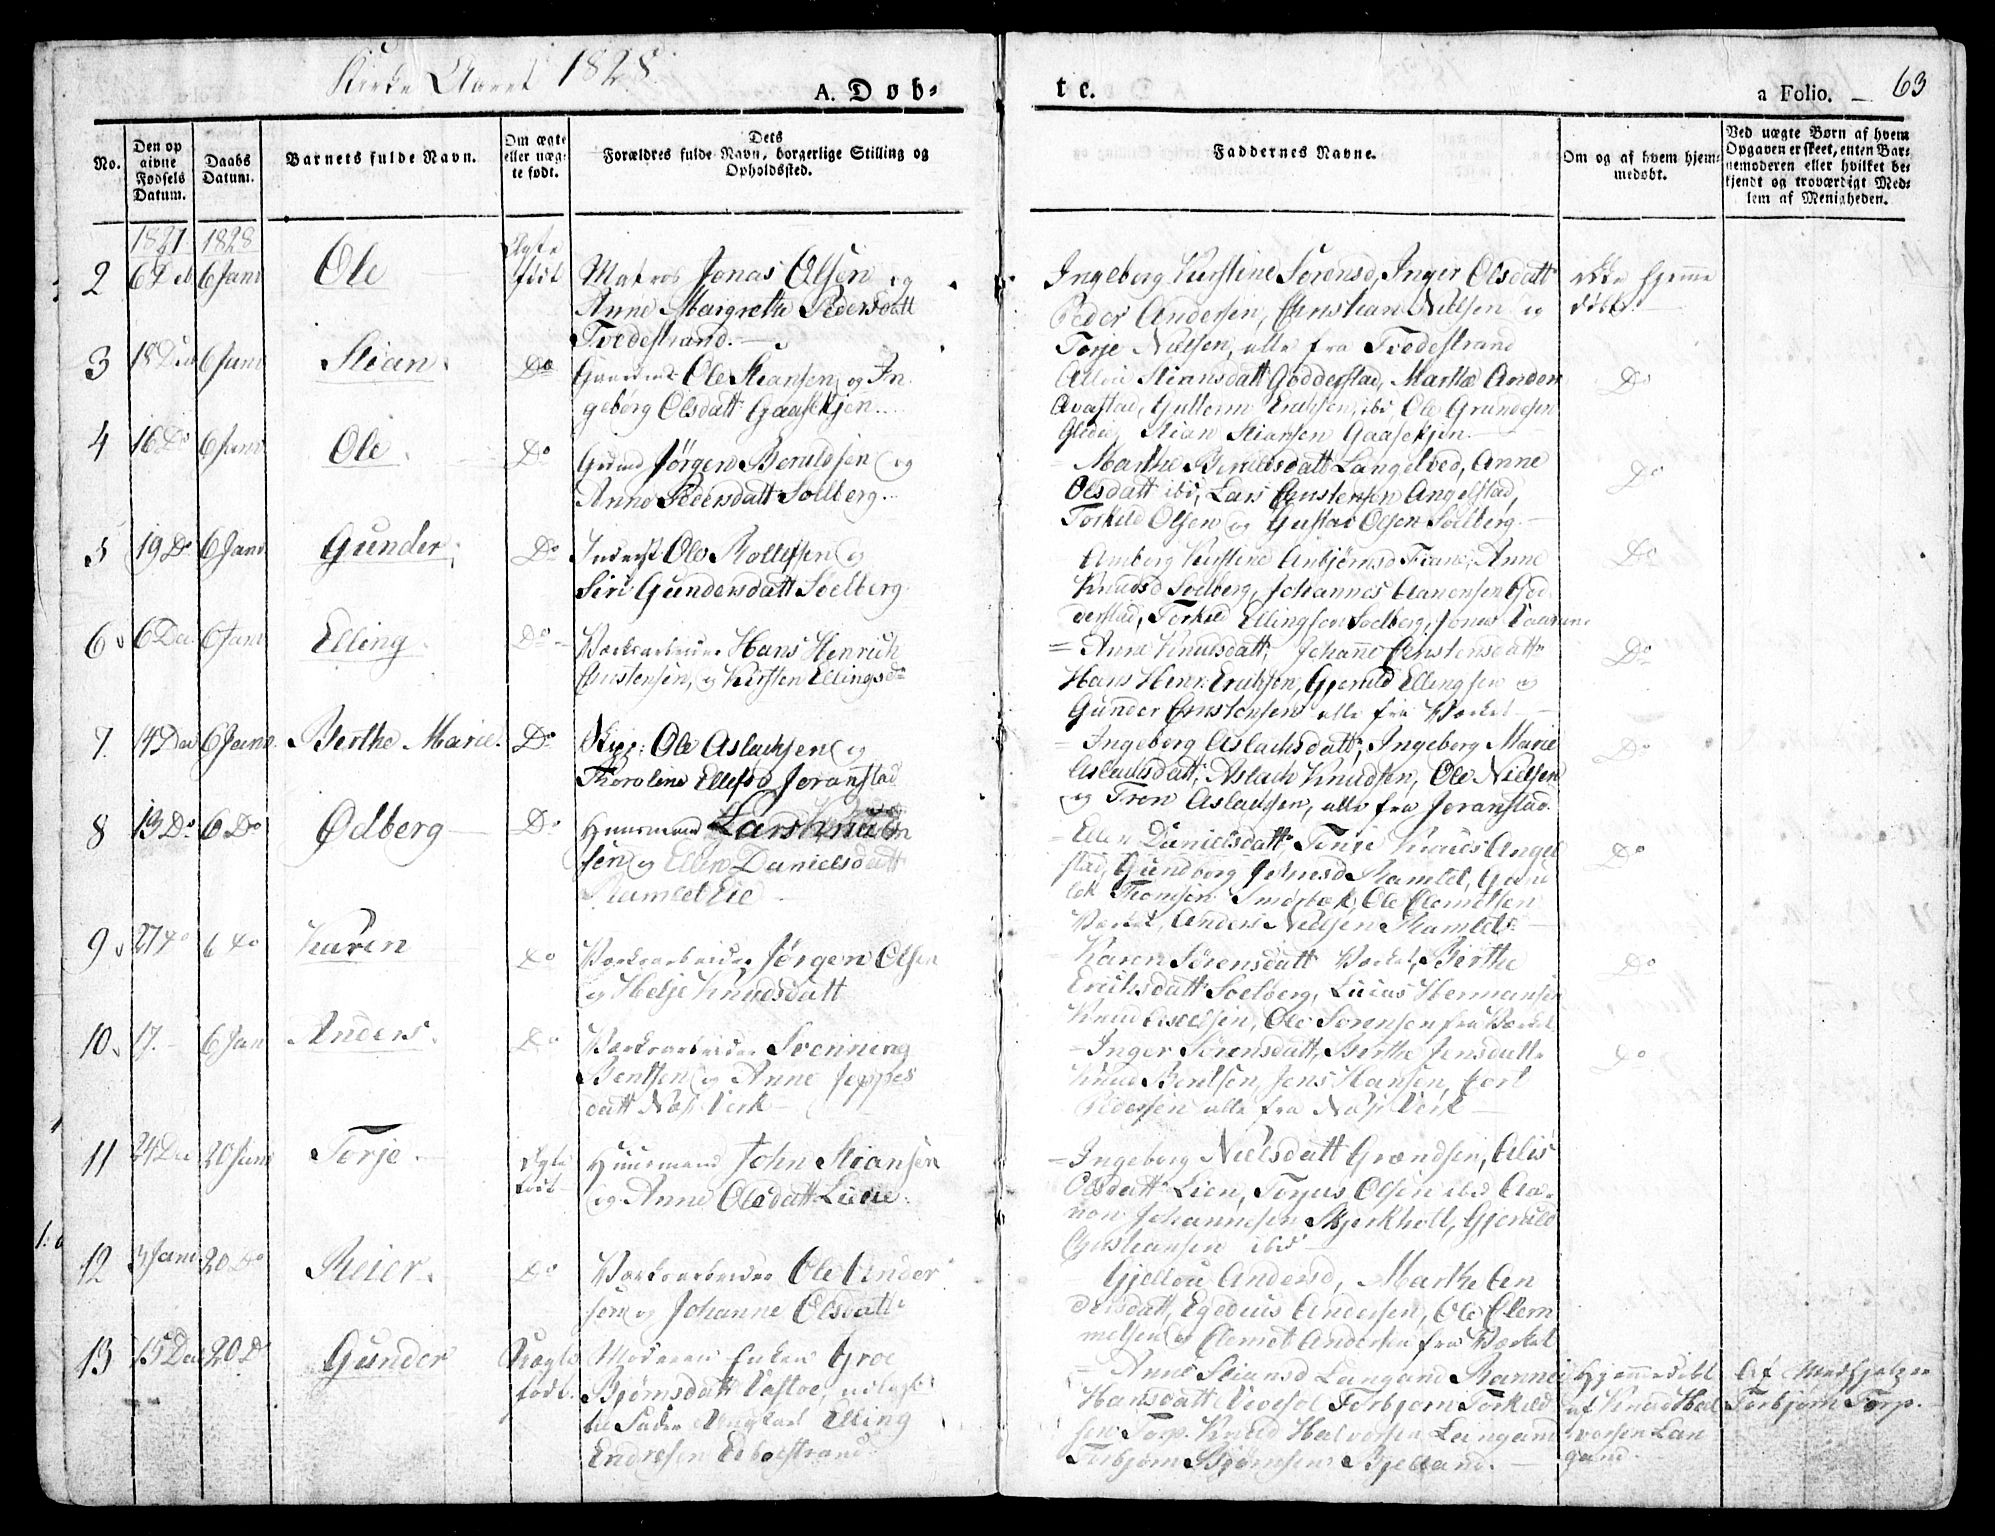 Kirke Aaret 1828.
A. Døb=
te.
a Folio. 63
No.
Den op
givne
Fødsels
Datum.
Daabs
Datum.
Barnets fulde Navn.
Om ægte
eller uæg-
te født.
Dets
Forældres fulde Navn, borgerlige Stilling og
Opholdssted.
Faddernes Navne.
Om og af hvem hjem=
medøbt.
Ved uægte Børn af hvem
Opgaven er skeet, enten Bar=
nemoderen eller hvilket be=
kjendt og troværdigt Med=
lem af Menigheden.
1827 1828
2 6 Deb 6 Janv Ole Ægte født
Matros Jonas Olsen og
Anne Margrethe Pedersdatt
Tvedestrand.
Ingeborg Kirstine Sørensd, Inger Olsdatt
Peder Andersen, Christian Nielsen og
Torje Nielsen, alle fra Tvedestrand
ikke hjemme
døbt.
3 18 Deb 6 Janv Stian. Do
Ole Stiansen og In
geborg Olsdatt Gaasekjen.
Stiansdatt Godderstad, Marthe
Avastad, Guttorm ibd, Ole Grundesen
Stian Stiansen Gaasekjen
Do
4 16 Do 6 Janv Ole. Do
Grdmd Jørgen Beruldsen og
Anne Pedersdatt Solberg.
Marthe Berulsdatt Langelved, Anne
Olsdatt ibd, Lars Christensen Angelstad,
Torkild Olsen og Gustav Olsen Solberg.
Do
5 19 Do 6 Janv Gunder. Do
Inderst Ole Rollefsen og
Siri Gundersdatt Soelberg
Amborg Kirstine Anbjørnsd Anne
Knudsd Soelberg, Johannes Aanonsen God
derstad, Torkild Ellingsen Soelberg, Jonas
Do
6 6 Dec 6 Janv Elling. Do
Værksarbeider Hans Henrich
Christensen, og Kirsten Ellingsdr
Anne Knudsdatt, Johanne Christensdatt
Hans Henr: Erichsen, Gjeruld Ellingsen og
Gunder Christensen alle fra Værket
Do
7. 14 Dec 6 Janv. Berthe Marie. Do
Skpr: Ole Aslachsen og
Thoroline Ellefsd Joranstad
Ingeborg Aslachsdatt, Ingeborg Marie
Aslachsdatt, Aslach Knudsen, Ole Nielsen
og Tron Aslachsen, alle fra Joranstad.
Do
8 13 Do 6 Do Ødberg Do
Huusmand Lars Knud
sen og Ellen Danielsdatt
Ramlet Eie
Ellen Danielsdatt, Torje Knudsd Angel
stad, Gundborg Johnsd Ramlet,
Thomsen Smørbek, Ole Clemetsen
Værket, Anders Nielsen Ramlet
Do
9 27 Do 6 Do Karen Do
Værksarbeider Jørgen Olsen
og Helje Knudsdatt
Karen Sørensdatt Værket, Berthe
Erichsdatt Soelberg, Lucas Hermansen
Knud Ole Sørensen fra Værket
Do
10. 17. 6 Jan Anders. Do
Værksarbeider Svenning
Bentsen og Anne Jeppes
datt Næs Verk
Inger Sørensdatt, Berthe Jensdatt
Knud Bentsen, Jens Hansen,
Pedersen alle fra Næs Verk
Do
11 24 Dec 20 Janv Torje. Ægte født
Huusmand John Stiansen
og Anne Olsdatt Liene.
Ingeborg Nielsdatt Grændsen, Alis
Olsdatt Lien, Torjus Olsen ibd Aa
non Johannesen Skjerkholt, Gjeruld
Christiansen ibd
12 3 Janv 20 Do Reier. Do
Værksarbeider Ole Ander
sen og Johanne Olsdatt
Andersd, Marthe An
dersdatt, Egedius Andersen, Ole Clem
metsen og Clemet Andersen fra Værket
13 15 Dec 20 Do Gunder Uægte født.
Moderen Enken Groe
Bjørnsdatt udlagt
til Fader Ungkarl Elling
Endresen Edboestrand
Anne Stiansd Langand
Hansdatt Torbjørn Torkild
sen Torp. Knud Halvorsen Langand
Torbjørn Bjørnsen Bjelland.
Hjemmedøbt
af Knud Hal
vorsen Lan
gand.
Af Medhjelper
Torbjørn Torp.